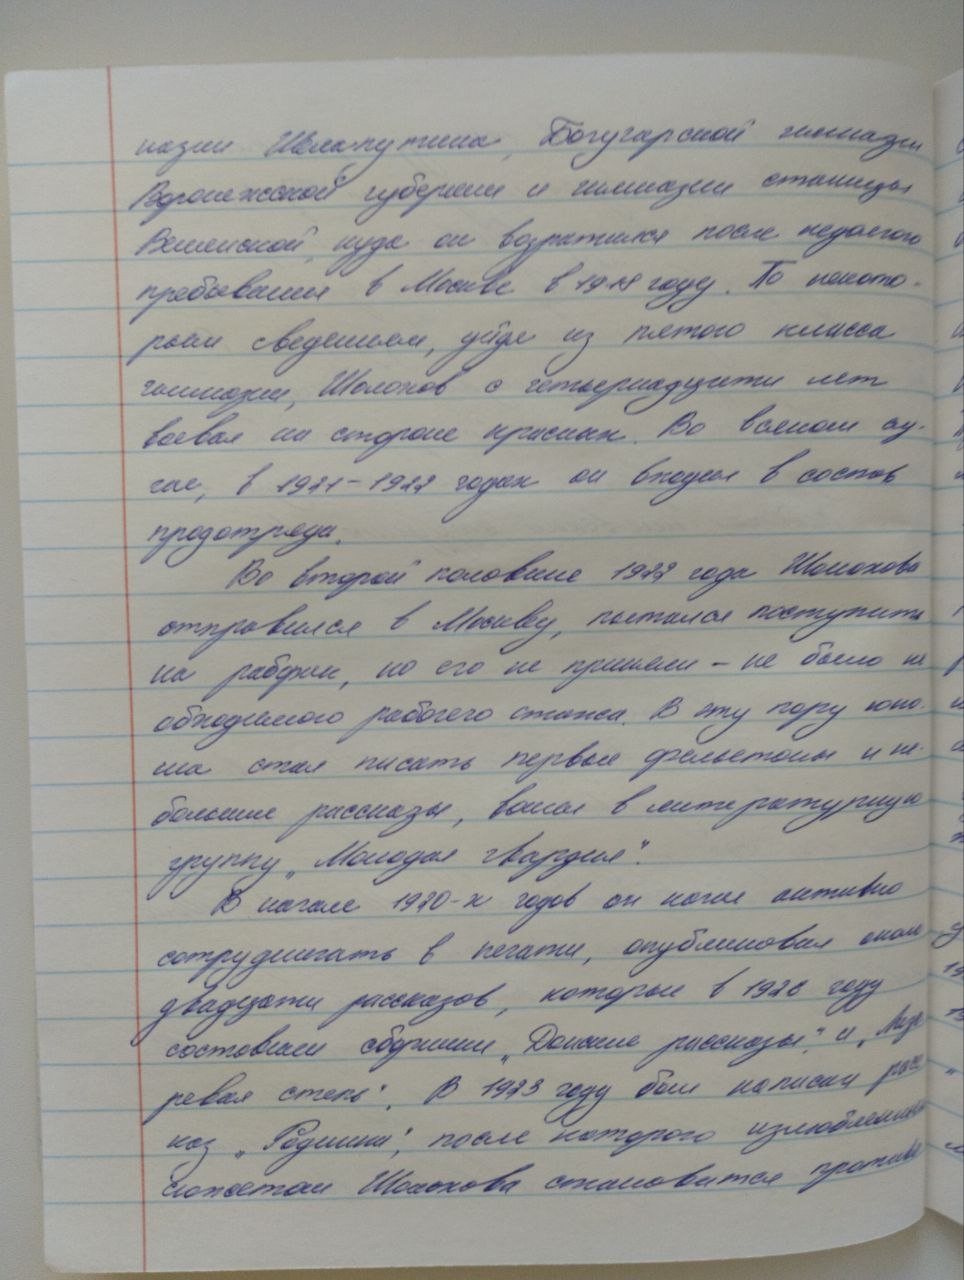 назии Шелапутина, Богучарской гимназии
Воронежской губернии и гимназии станицы
Вешенской, куда он возратился после недолгого
пребывания в Москве в 1918 году. По некото-
рым сведениям, уйдя из пятого класса
гимназии, Шолохов с четырнадцати лет
воевал на стороне красных. Во всяком слу-
чае, в 1921-1922 годах он входил в состав
продотряда.
Во второй половине 1922 года Шолохов
отправился в Москву, пытался поступить
на рабфак, но его не приняли - не было не
обходимого рабочего стажа. В эту пору юно-
ша стал писать первые фельетоны и не-
большие рассказы, вошел в литературную
группу „Молодая гвардия".
В начале 1920-х годов он начал активно
сотрудничать в печати, опубликовал около
двадцати рассказов, которые в 1926 году
составили сборники „Донские рассказы" и „Лазо
ревая степь". В 1923 году был написан расс
каз „Родинка", после которого излюбленным
сюжетом Шолохова становится